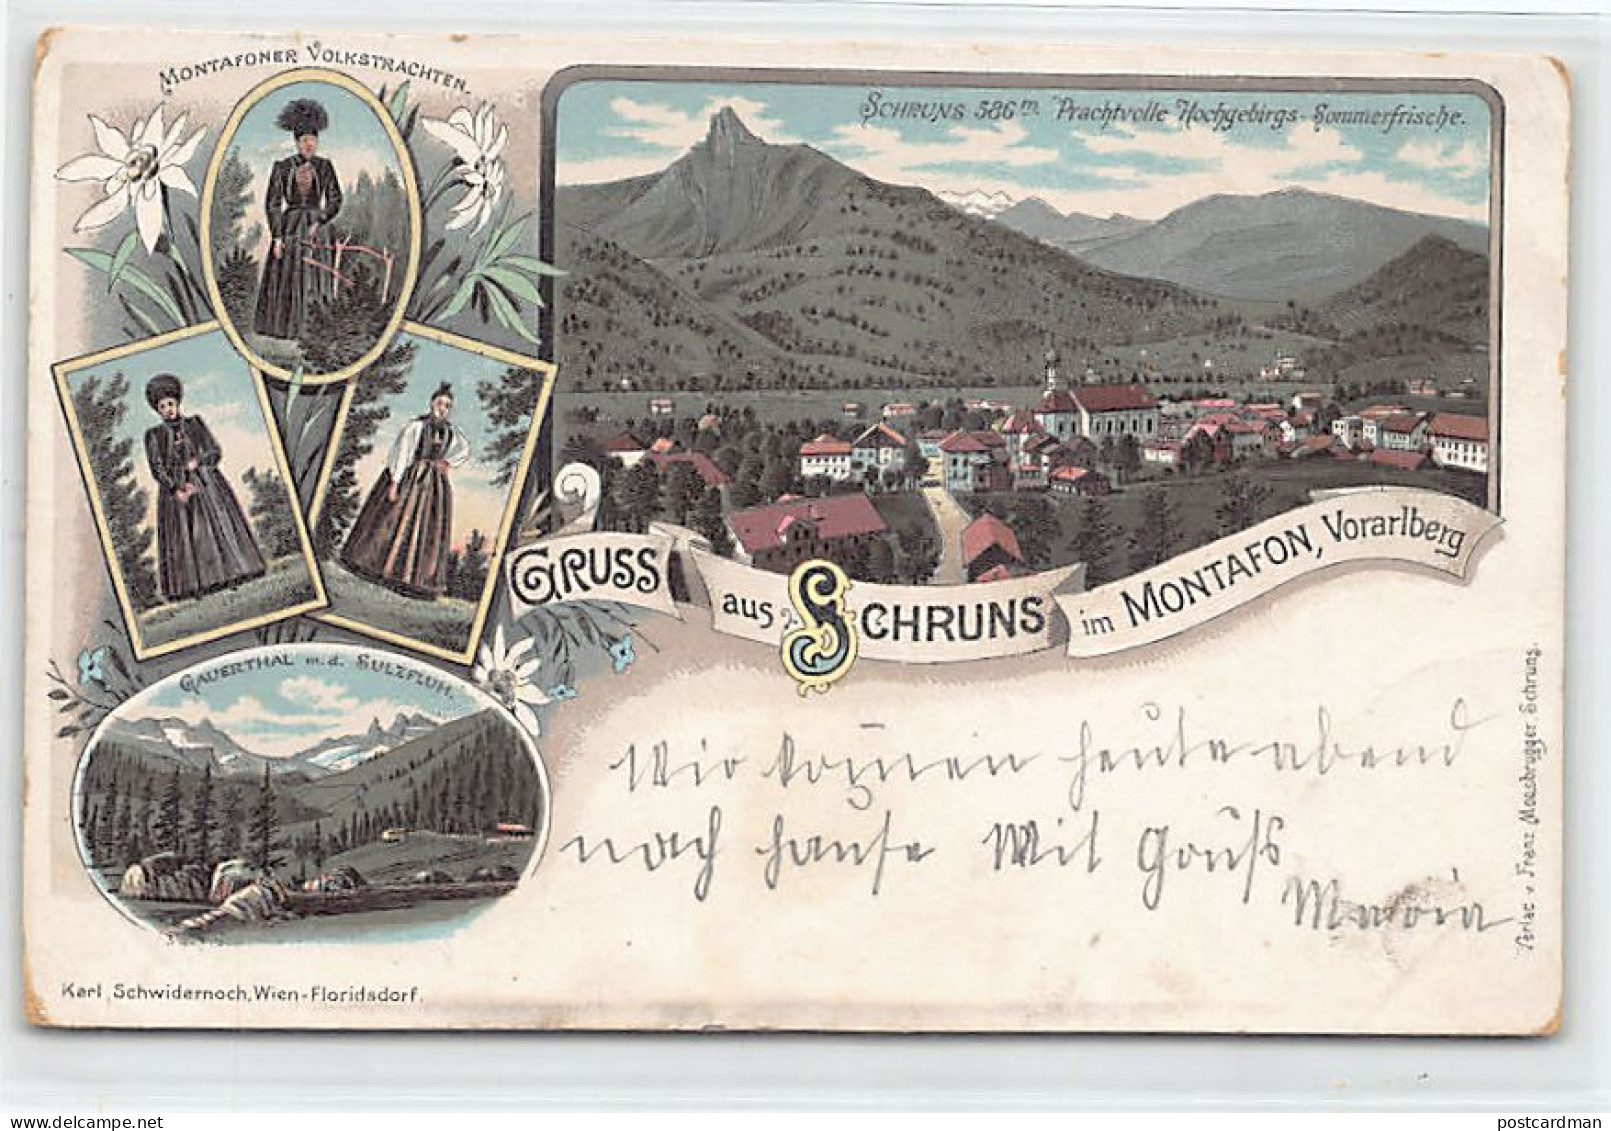 MONTAFONER VOLKSTRACHTEN.
SCHRUNS 586 m. Prachtvolle Hochgebirgs-Sommerfrische.
GRUSS aus SCHRUNS im MONTAFON, Vorarlberg
GAUERTHAL m.d. SULZFLUH.
Wir kom̄en heute abend
nach hause Mit Gruß
Maria
Verlag v Franz Moesbrugger Schruns.
Karl Schwidernoch, Wien-Floridsdorf.
postcardman